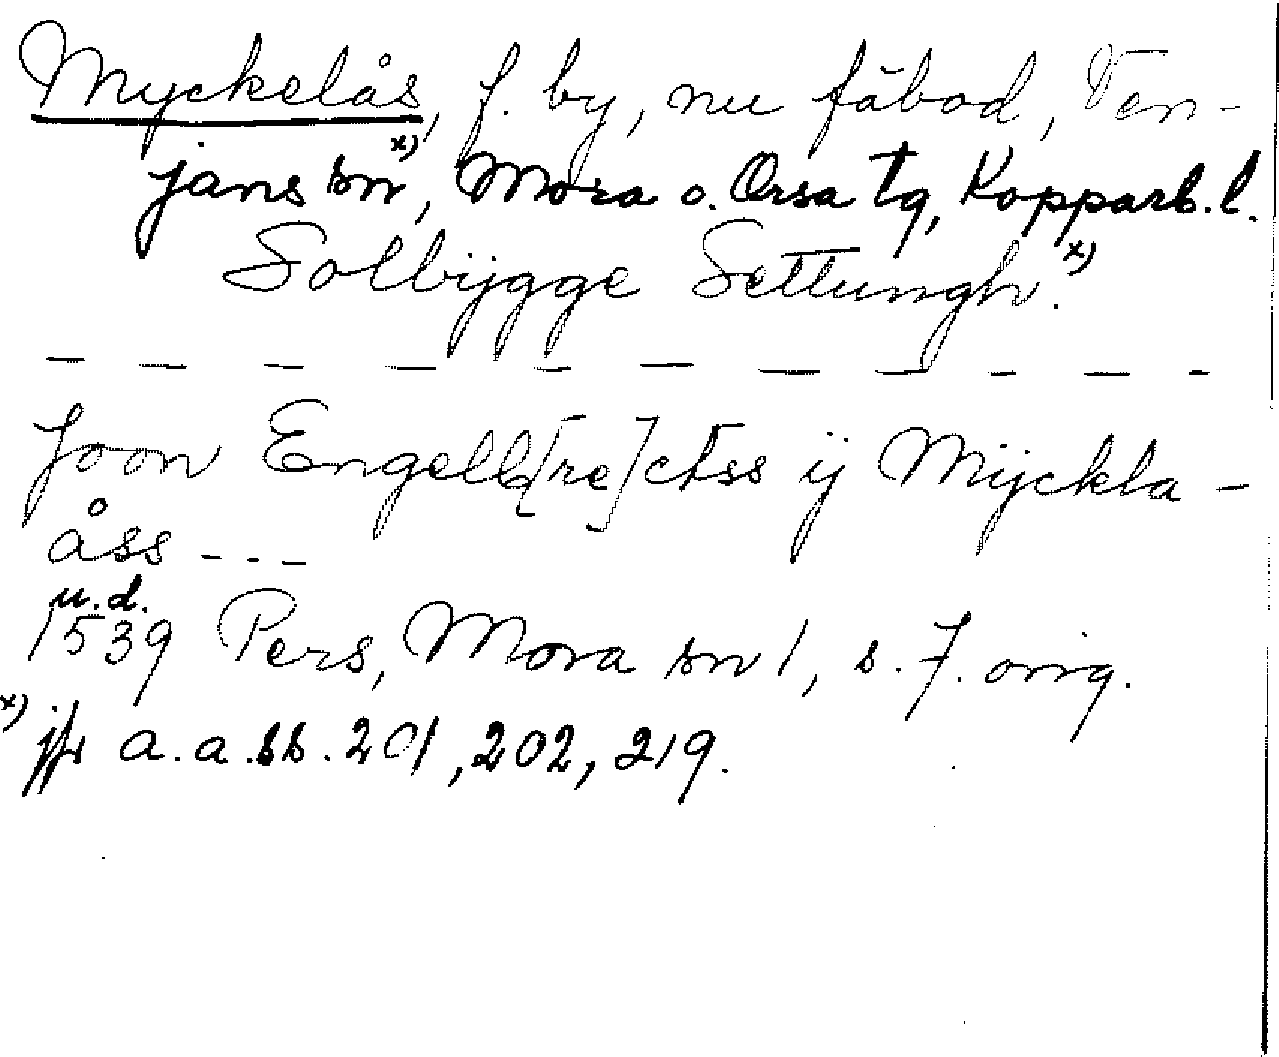 Myckelås, f. by, nu fäbod, Ven-
jans sn x), Mora o. Orsa tg, Kopparb. l.
Solbijgge Settungh. x)
— — — — — — — — — — —
Joon Engelb[re]ctss ij Mijckla-
åss - - -
u.d.
1539 Pers, Mora sn 1, s. 7. orig.
x) jfr a.a. ss. 201, 202, 219.